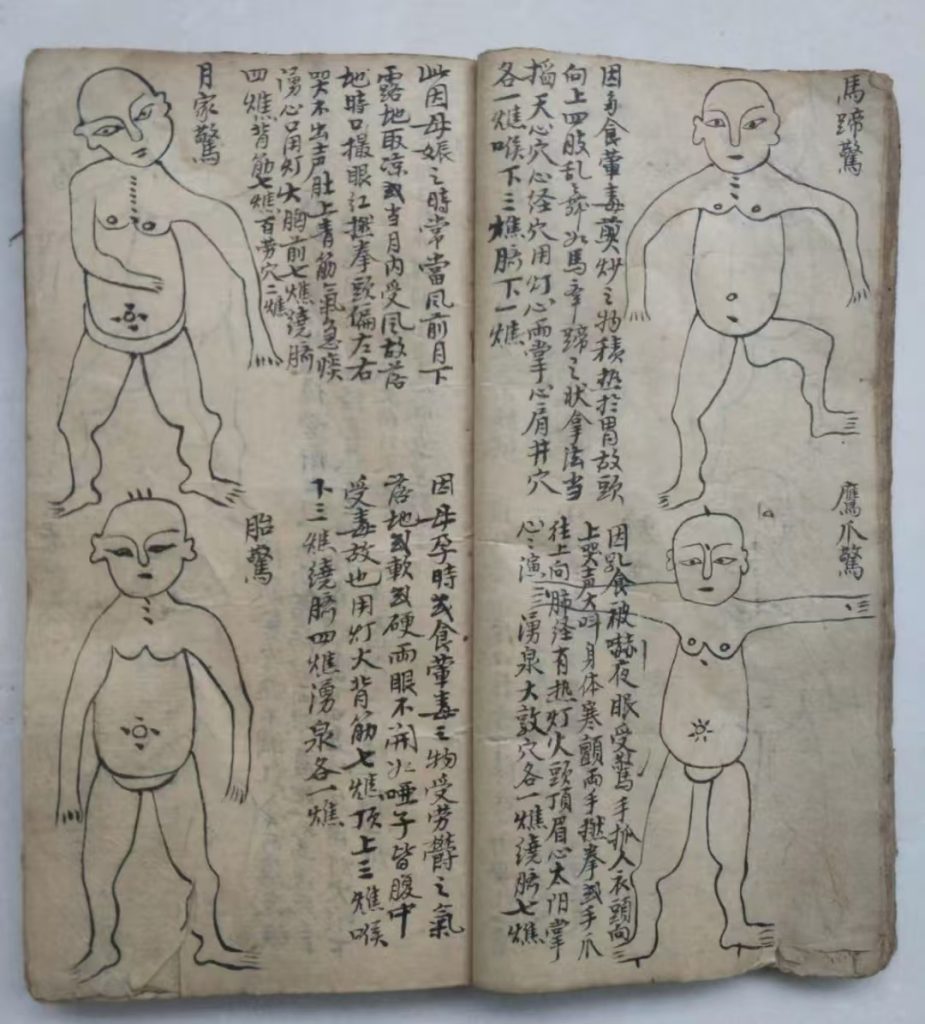 馬蹄驚
因多食葷毒煎炒之物積热於胃故頭
向上四肢乱舞如馬奔蹄之狀拿法当
掐天心穴心经穴用灯心兩掌心肩井穴
各一燋喉下三燋臍下一燋
鷹爪驚
因乳食被嚇夜眠受驚手抓人衣頭向
上哭声大叫身体寒顫兩手撚拳或手爪
往上向肺经有热灯火頭頂眉心太阳掌
心演三湧泉大敦穴各一燋繞臍七燋
此因母娠之時常當风前月下
露地取凉或当月内受风故落
地時口撮眼红撚拳頭偏左右
哭不出声肚上青筋氣急喉
湧心口用灯火胸前七燋繞臍
四燋背筋七燋百劳穴二燋
月家驚
因母孕時或食葷毒之物受劳欝之氣
落地或軟或硬兩眼不開如哑子皆腹中
受毒故也用灯火背筋七燋顶上三燋喉
下三燋繞臍四燋湧泉各一燋
胎驚